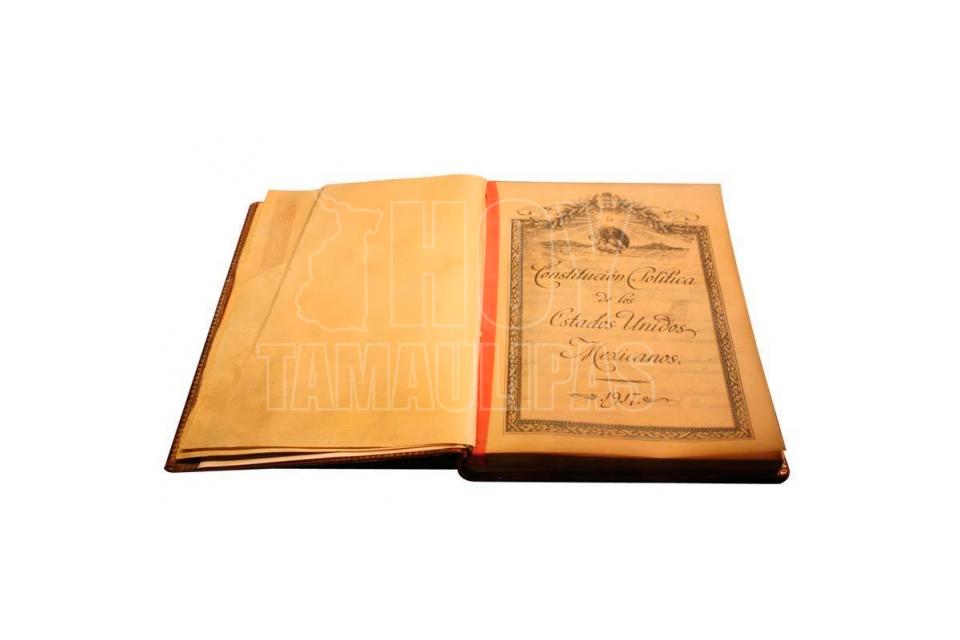 HOY
TAMAULIPAS
Constitución Política
de los
Estados Unidos
Mexicanos.
1917.